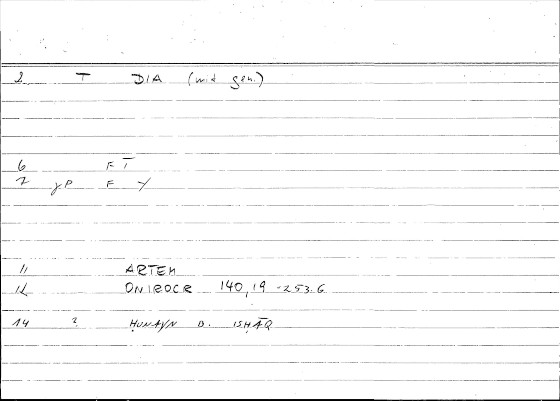 2 T DIA (mit gen.)
6 F T̄
7 γP F Y
11 ARTEM
12 ONIROCR 140,19 -253.6
14 ? ḤUNAYN B. ISḤĀQ